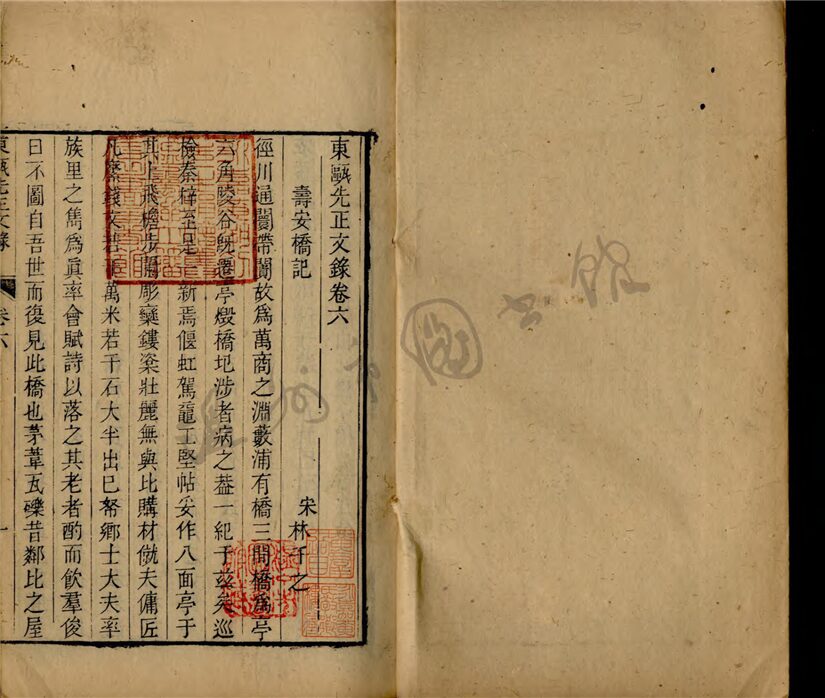 東甌先正文錄卷六
壽安橋記
宋林千之
徑川通闤帶闠故爲萬商之淵藪浦有橋三間橋爲亭
六角陵谷旣遷亭燬橋圯涉者病之葢一紀于玆矣巡
檢秦梓至是新焉偃虹駕黿工堅帖妥作八面亭于
其上飛檐步閣彫欒鏤楶壯麗無與比購材僦夫傭匠
凡縻錢文若干萬米若干石大半出巳帑鄉士大夫率
族里之雋爲眞率會賦詩以落之其老者酌而飮羣俊
曰不圖自吾世而復見此橋也茅葦瓦礫昔鄰比之屋
東甌先正文錄
卷六
一
圖書館